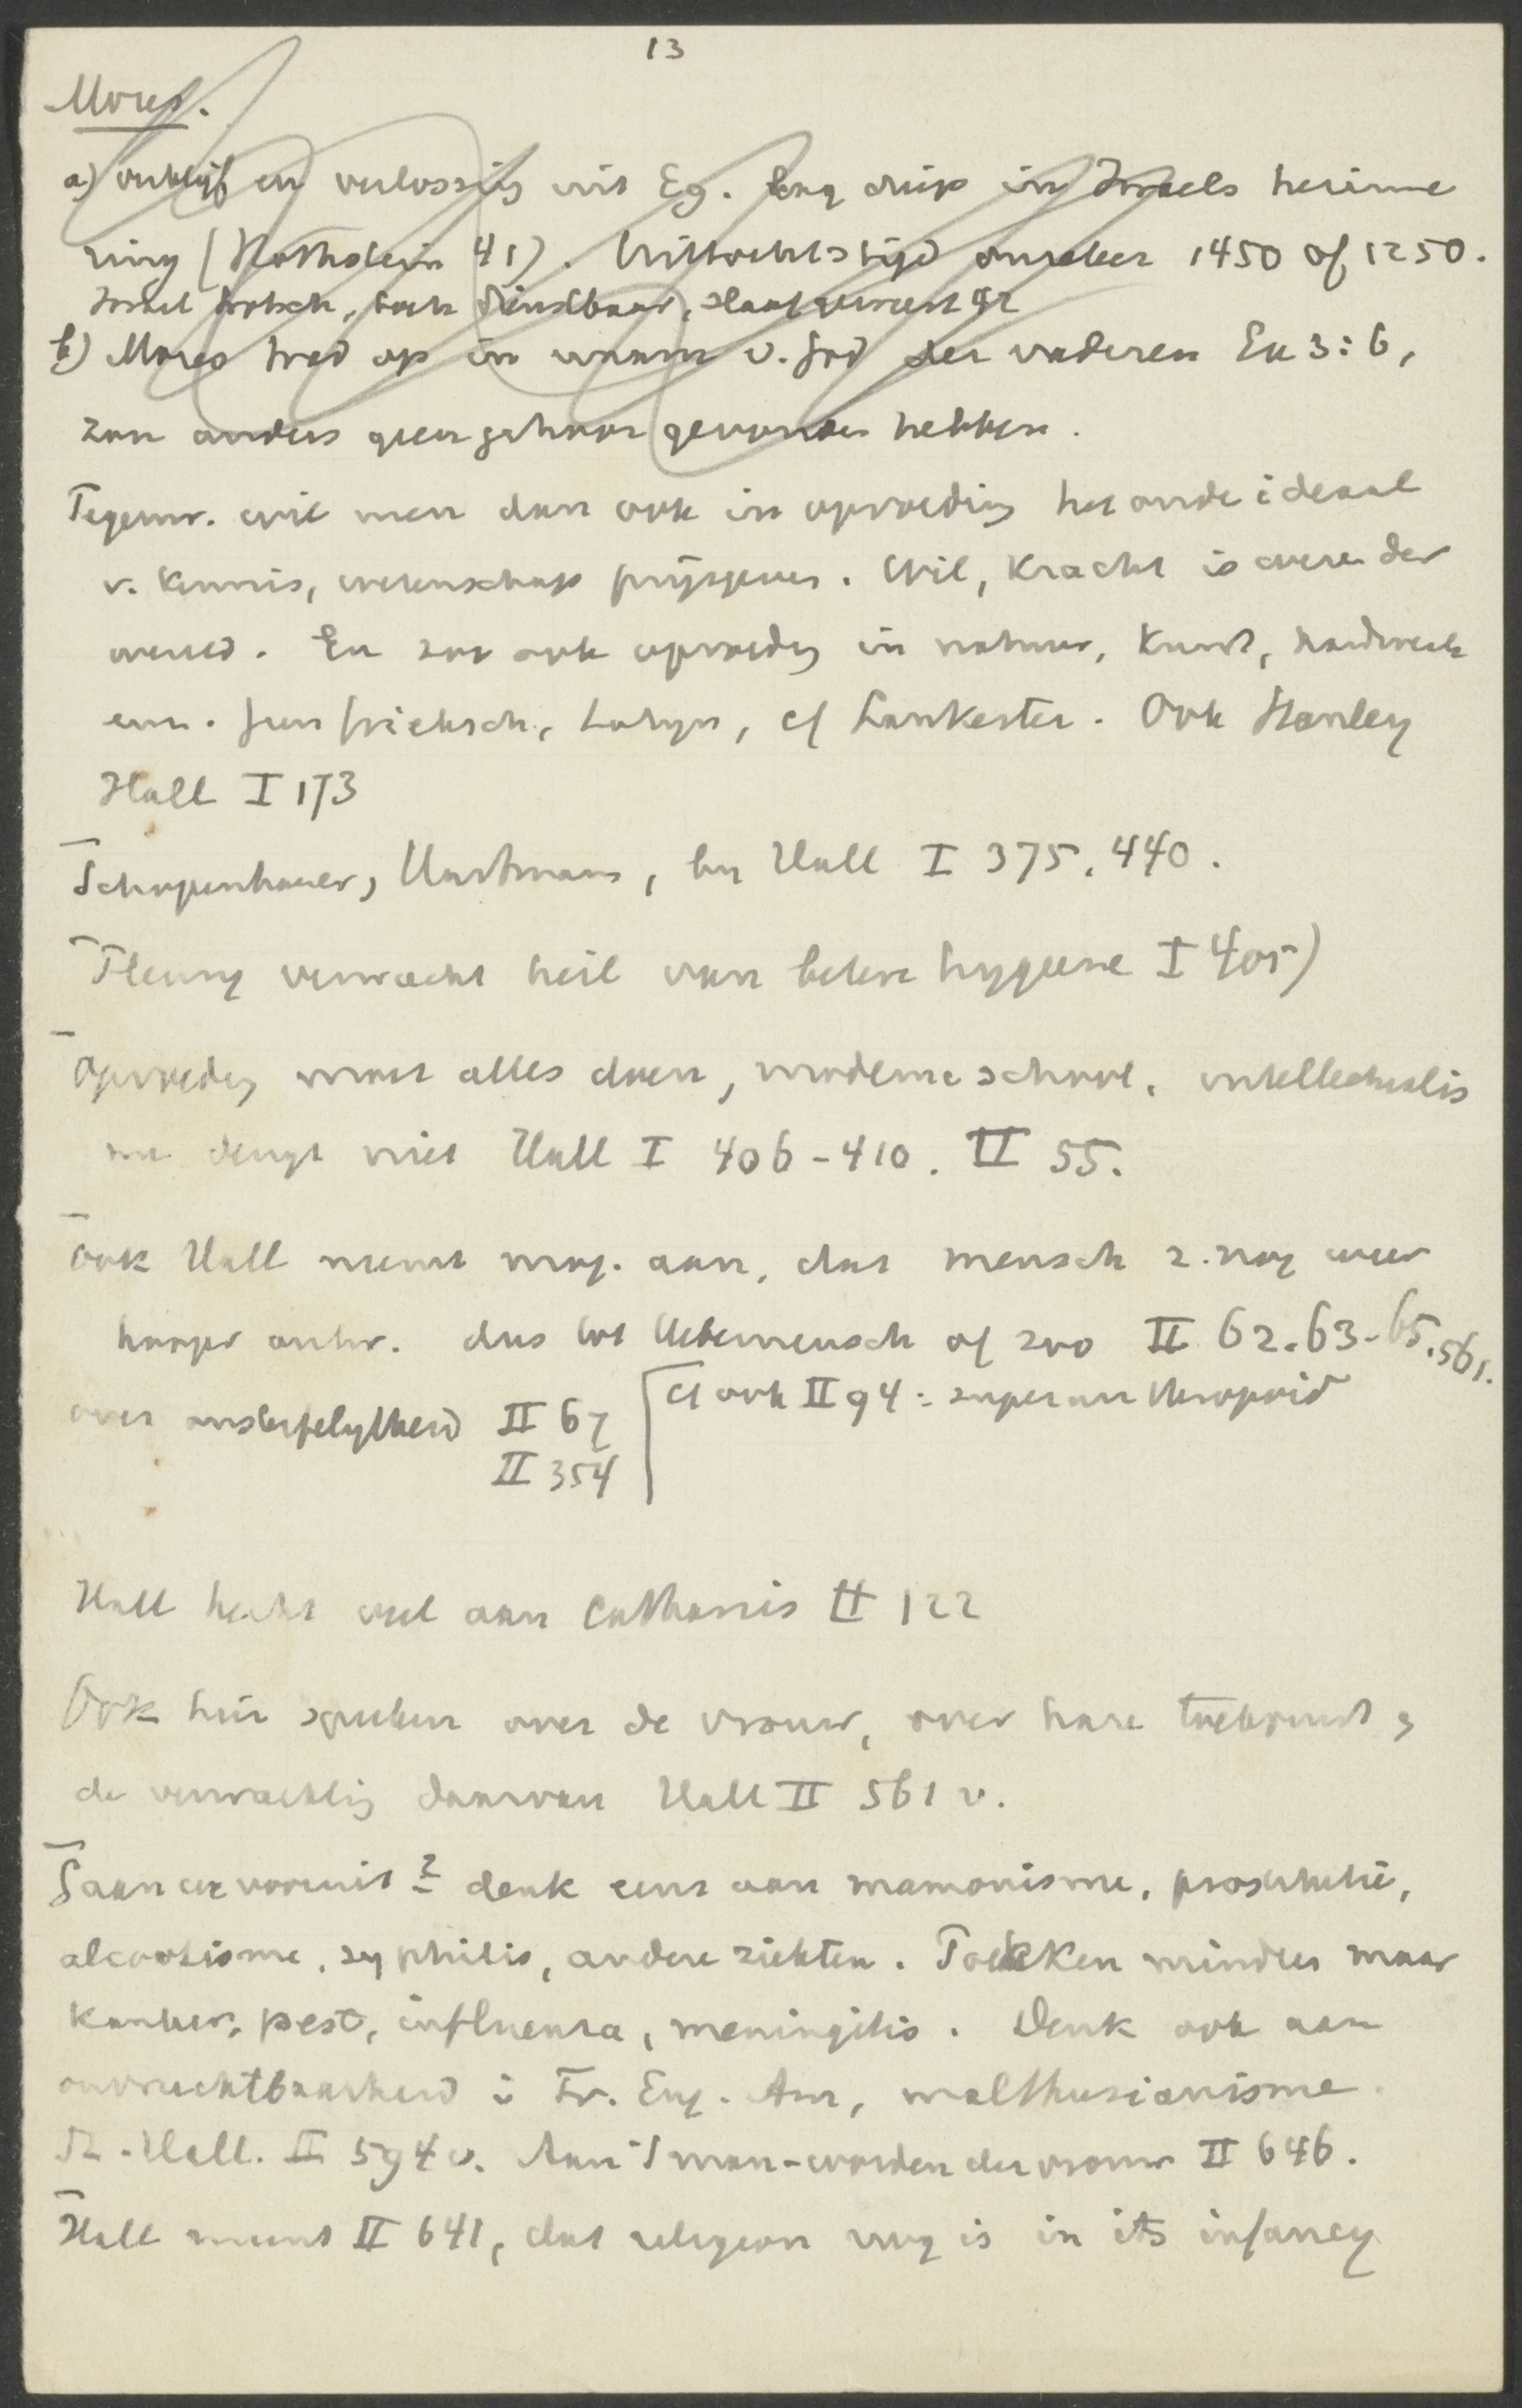 13
Mozes.
a) verblijf en verlossing uit Eg. lag diep in Israels herinne
ring (Rothstein 41). Uittochtstijd onzeker 1450 of 1250.
Israel trotsch, toch dienstbaar,
b) Mozes trad op in naam v. God der vaderen Ex 3:6,
zou anders geen gehoor gevonden hebben.
Tegenw. wil men dan ook in opvoeding het oude ideaal
v. kennis, wetenschap prijsgeven. Wil, kracht is wezen der
wereld. En zoo ook opvoedg in natuur, kunst, handwerk
enz. geen grieksch, Latyn, cf Lankester. Ook Stanley
Hall I 173
Schopenhauer, Hartmann, by Hall I 375, 440.
Fleury verwacht heil van betere hygiene I 405)
Opvoedg moet alles doen, moderne school, intellectualis
me deugt niet Hall I 406-410. II 55.
Ook Hall neemt mog. aan, dat mensch z. nog weer
hooger ontw. dus tot Uebermensch of zoo II 62.63-65.561.
over onsterfelykheid II 67
cf ook II 94: superanthropoid
II 354
Hall hecht veel aan Catharsis II 122
Ook hier spreken over de vrouw, over hare toekomst &
de verwachtig daarvan Hall II 561 v.
Gaan we vooruit? denk eens aan mamonisme, prostitutie,
alcoolisme, syphilis, andere ziekten. Pokken minder maar
kanker, pest, influenza, meningitis. Denk ook aan
onvruchtbaarheid i Fr. Eng. Am, malthusianisme.
St. Hall. II 594 v. Aan 't man-worden der vrouw II 646.
Hall meent II 641, dat religion nog is in its infancy